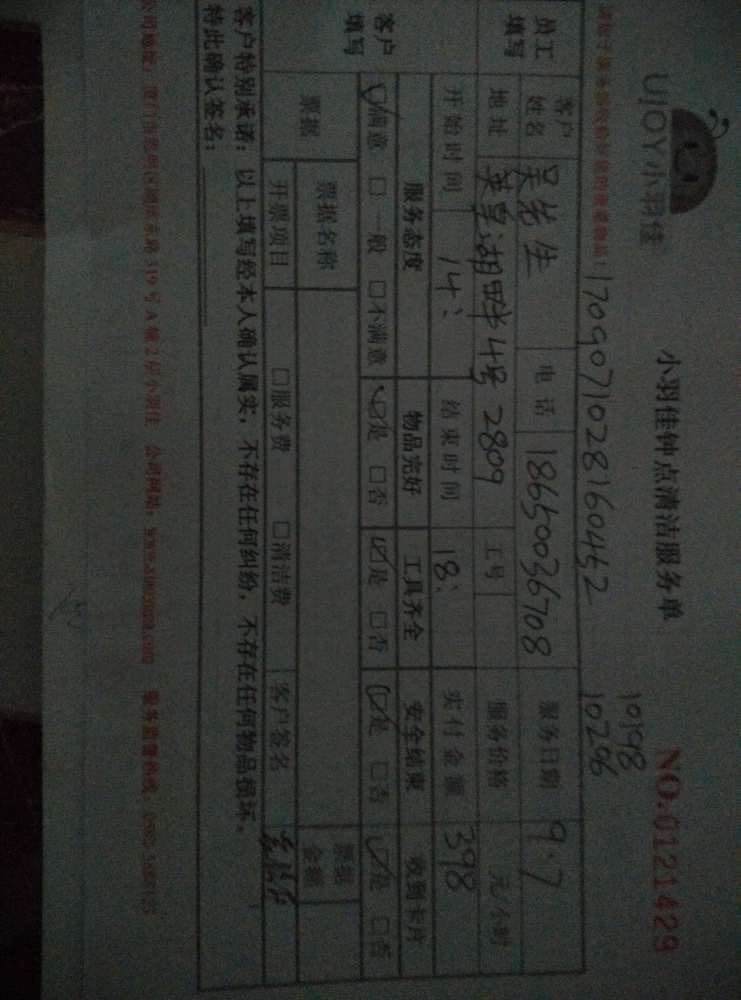 UJOY小羽佳
小羽佳钟点清洁服务单
NO:0121429
1709071028160452
10198
10296
员工填写
客户姓名 吴先生 电话 18650036708 服务日期 9.7
地址 英皇湖畔4号2809 工号 服务价格 元/小时
开始时间 14: 结束时间 18: 实付金额 398
客户填写
服务态度 物品完好 工具齐全 安全结束 收到卡片
☑满意 □一般 □不满意 ☑是 □否 ☑是 □否 ☑是 □否 ☑是 □否
票据 票据名称 票据金额
开票项目 □服务费 □清洁费 客户签名
客户特别承诺:以上填写经本人确认属实,不存在任何纠纷,不存在任何物品损坏。
特此确认签名:
公司地址: 319号A幢2层小羽佳 公司网站: 服务监督热线: